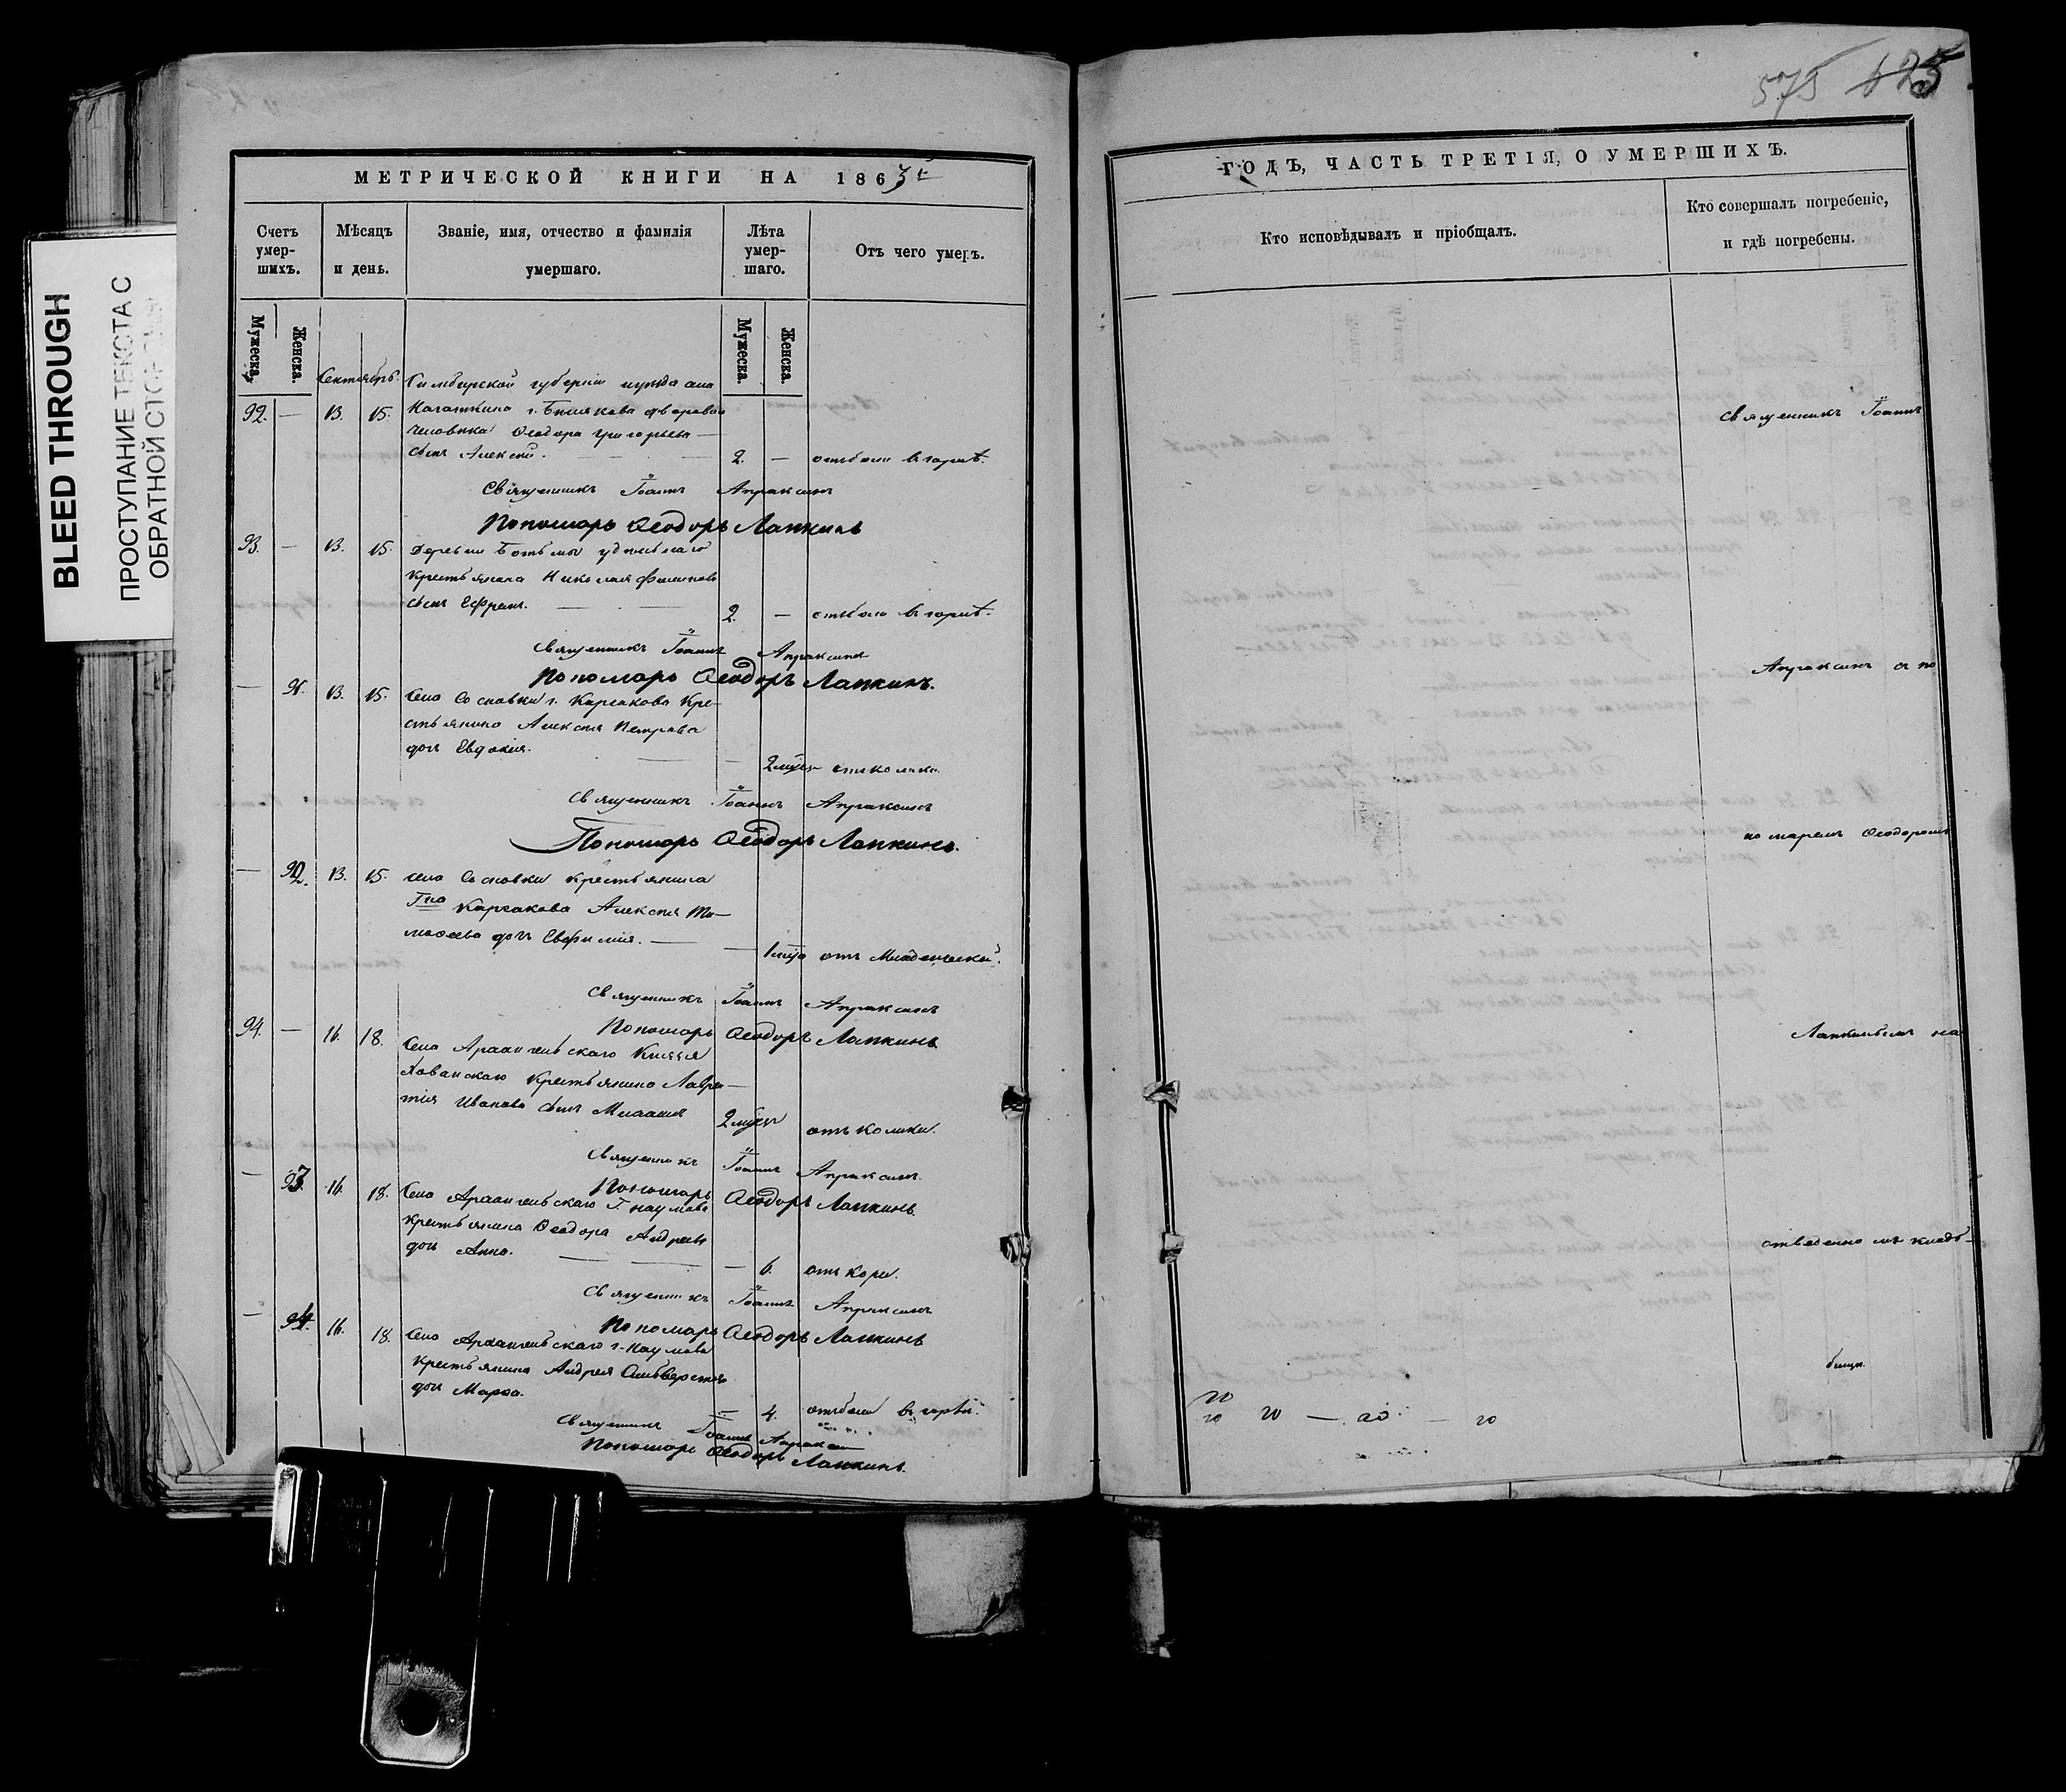 BLEED THROUGH
ПРОСТУПАНИЕ ТЕКСТА С
ОБРАТНОЙ
575 625
МЕТРИЧЕСКОЙ КНИГИ НА 186
Счетъ умер-шихъ.
Мѣсяцъ и день.
Званіе, имя, отчество и фамилія умершаго.
Лѣта умер-шаго.
Отъ чего умеръ.
Мужеска.
Женска.
Мужеска.
Женска.
Сентябрь.
Симбирской губерніи
92. — 13. 15. г. дворова
человѣка Ѳеодора Григорьева
сынъ Алексѣй. — 2. — отъ боли въ горлѣ.
Священникъ Іоаннъ Апраксинъ
Пономарь Ѳеодоръ Лапкинъ
93. — 13. 15. Деревни удѣльнаго
крестьянина Николая Филипова
сынъ Ефремъ. — 2. — отъ боли въ горлѣ.
Священникъ Іоаннъ Апраксинъ
Пономарь Ѳеодоръ Лапкинъ.
— 91. 13. 15. Села Сосновки г. Каргакова кре-
стьянина Алексѣя Петрова
дочь Евдокія.
— 2 отъ колики.
Священникъ Іоаннъ Апраксинъ
Пономарь Ѳеодоръ Лапкинъ.
— 92. 13. 15. села Сосновки крестьянина
Гна Каргакова Алексѣя Ти-
моѳеева дочь Евфимія. — — 1 отъ Младенческой.
Священникъ Іоаннъ Апраксинъ
Пономарь Ѳеодоръ Лапкинъ
94. — 16. 18. Села Архангельскаго Князя
Хованскаго крестьянина Лаврен-
тія Иванова сынъ 2 отъ колики.
Священникъ Іоаннъ Апраксинъ
Пономарь Ѳеодоръ Лапкинъ
— 93. 16. 18. Села Архангельскаго Г. Наумова
крестьянина Ѳеодора Андреева
дочь Анна. — — 6. отъ кори.
Священникъ Іоаннъ Апраксинъ
Пономарь Ѳеодоръ Лапкинъ
— 94. 16. 18. Села Архангельскаго г. Наумова
крестьянина Андрея Сильверстова
дочь Марѳа.
— 4. отъ боли въ горлѣ.
Священникъ Іоаннъ Апраксинъ
Пономарь Ѳеодоръ Лапкинъ.
ГОДЪ, ЧАСТЬ ТРЕТІЯ, О УМЕРШИХЪ.
Кто исповѣдывалъ и пріобщалъ.
Кто совершалъ погребеніе,
и гдѣ погребены.
Священникъ Іоаннъ
Апраксинъ съ по
номаремъ Ѳеодоромъ
Лапкинымъ на
отведенномъ кладб-
бищѣ.